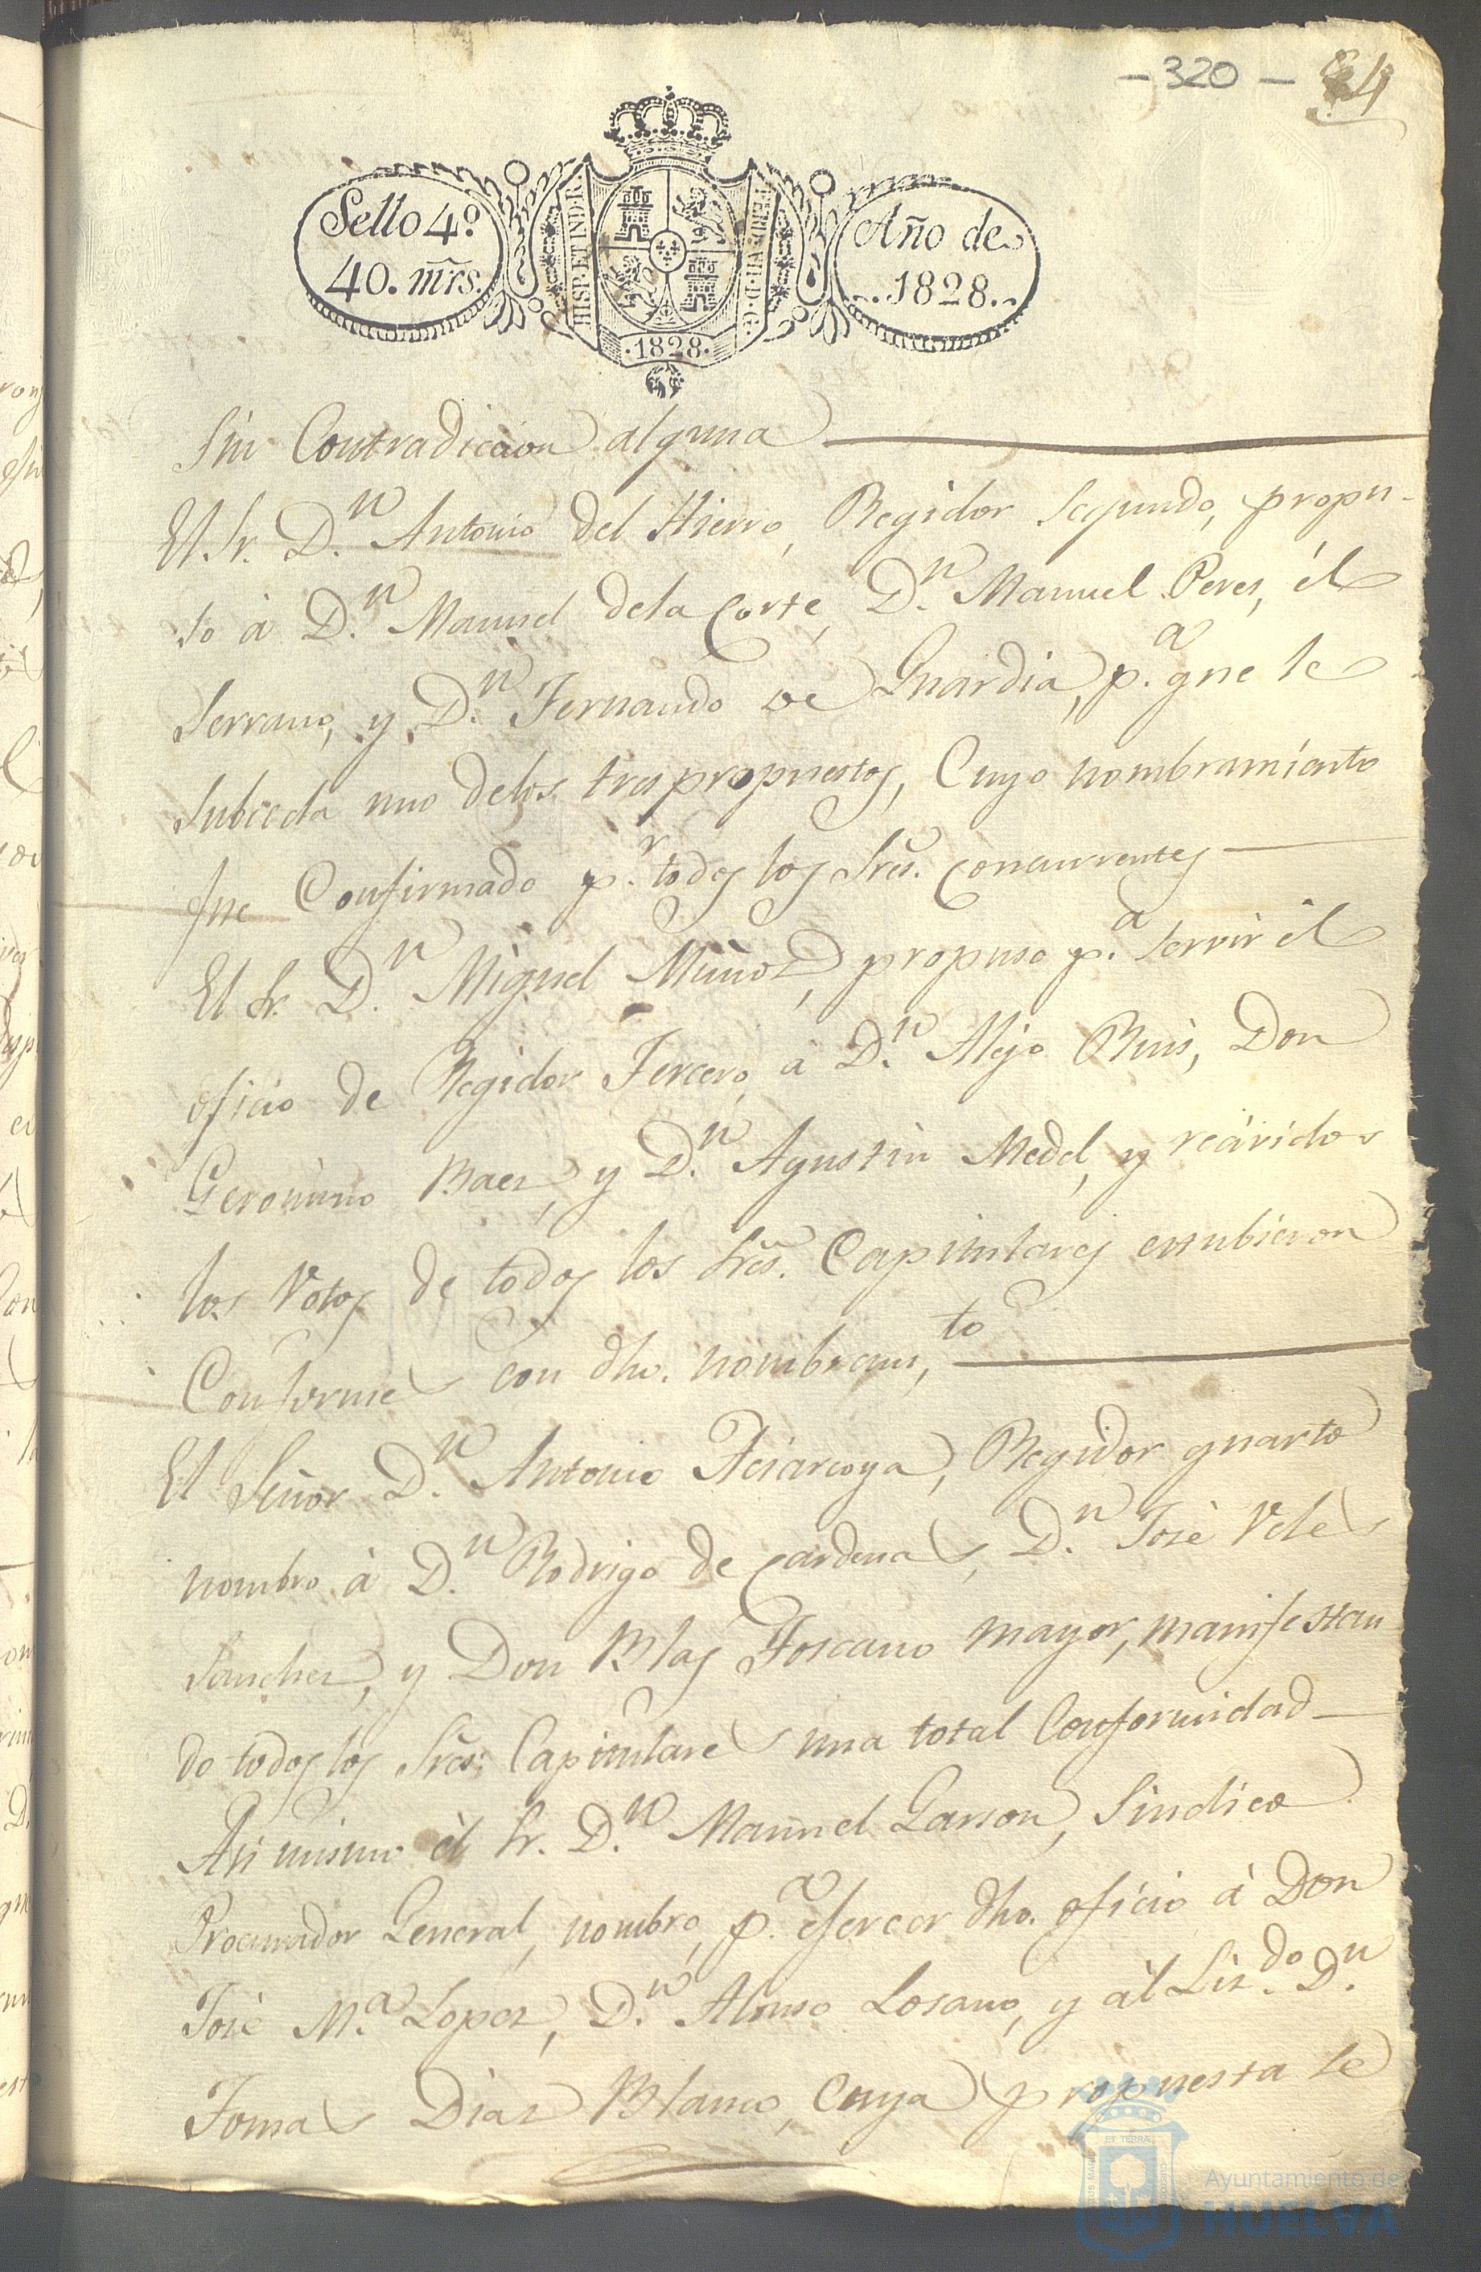 - 320 - 84
Sello 4.º
40. mrs.
HISP. ET IND. R.
FERD. VII. D. G.
Año de
1828.
·1828·
Sin Contradiccion alguna
El Sr. D.n Antonio del Hierro, Regidor Segundo, propu-
so à D.n Manuel dela Corte, D.n Manuel Peres, él
Serrano, y D.n Fernando de Guardia, p.a que le
Subceda uno delos tres propuestos, Cuyo nombramiento
fue Confirmado p.r todos los Sres. Concurrentes
El Sr. D.n Miguel Muñoz, propuso p.a servir él
oficio de Regidor Tercero, à D.n Alejo Ruis, Don
Geronimo Baez, y D.n Agustin Medel, y recividos
los Votos de todos los Sres. Capitulares estubieron
Conformes con dho. nombram,to
El Señor D.n Antonio Regidor quarto
nombro à D.n Rodrigo de Cardenas, D.n José Veles
Sanchez, y Don Blas Toscano mayor, manifestan
do todos los Sres. Capitulares una total Conformidad
Asi mismo él Sr. D.n Manuel Garson, Sindico
Procurador General, nombro, p.a eserser dho. oficio à Don
José M.a Lopez, D.n Alonso Losano, y àl Liz.do D.n
Tomas Diaz Blanco, Cuya propuesta se
Ayuntamiento de
HUELVA